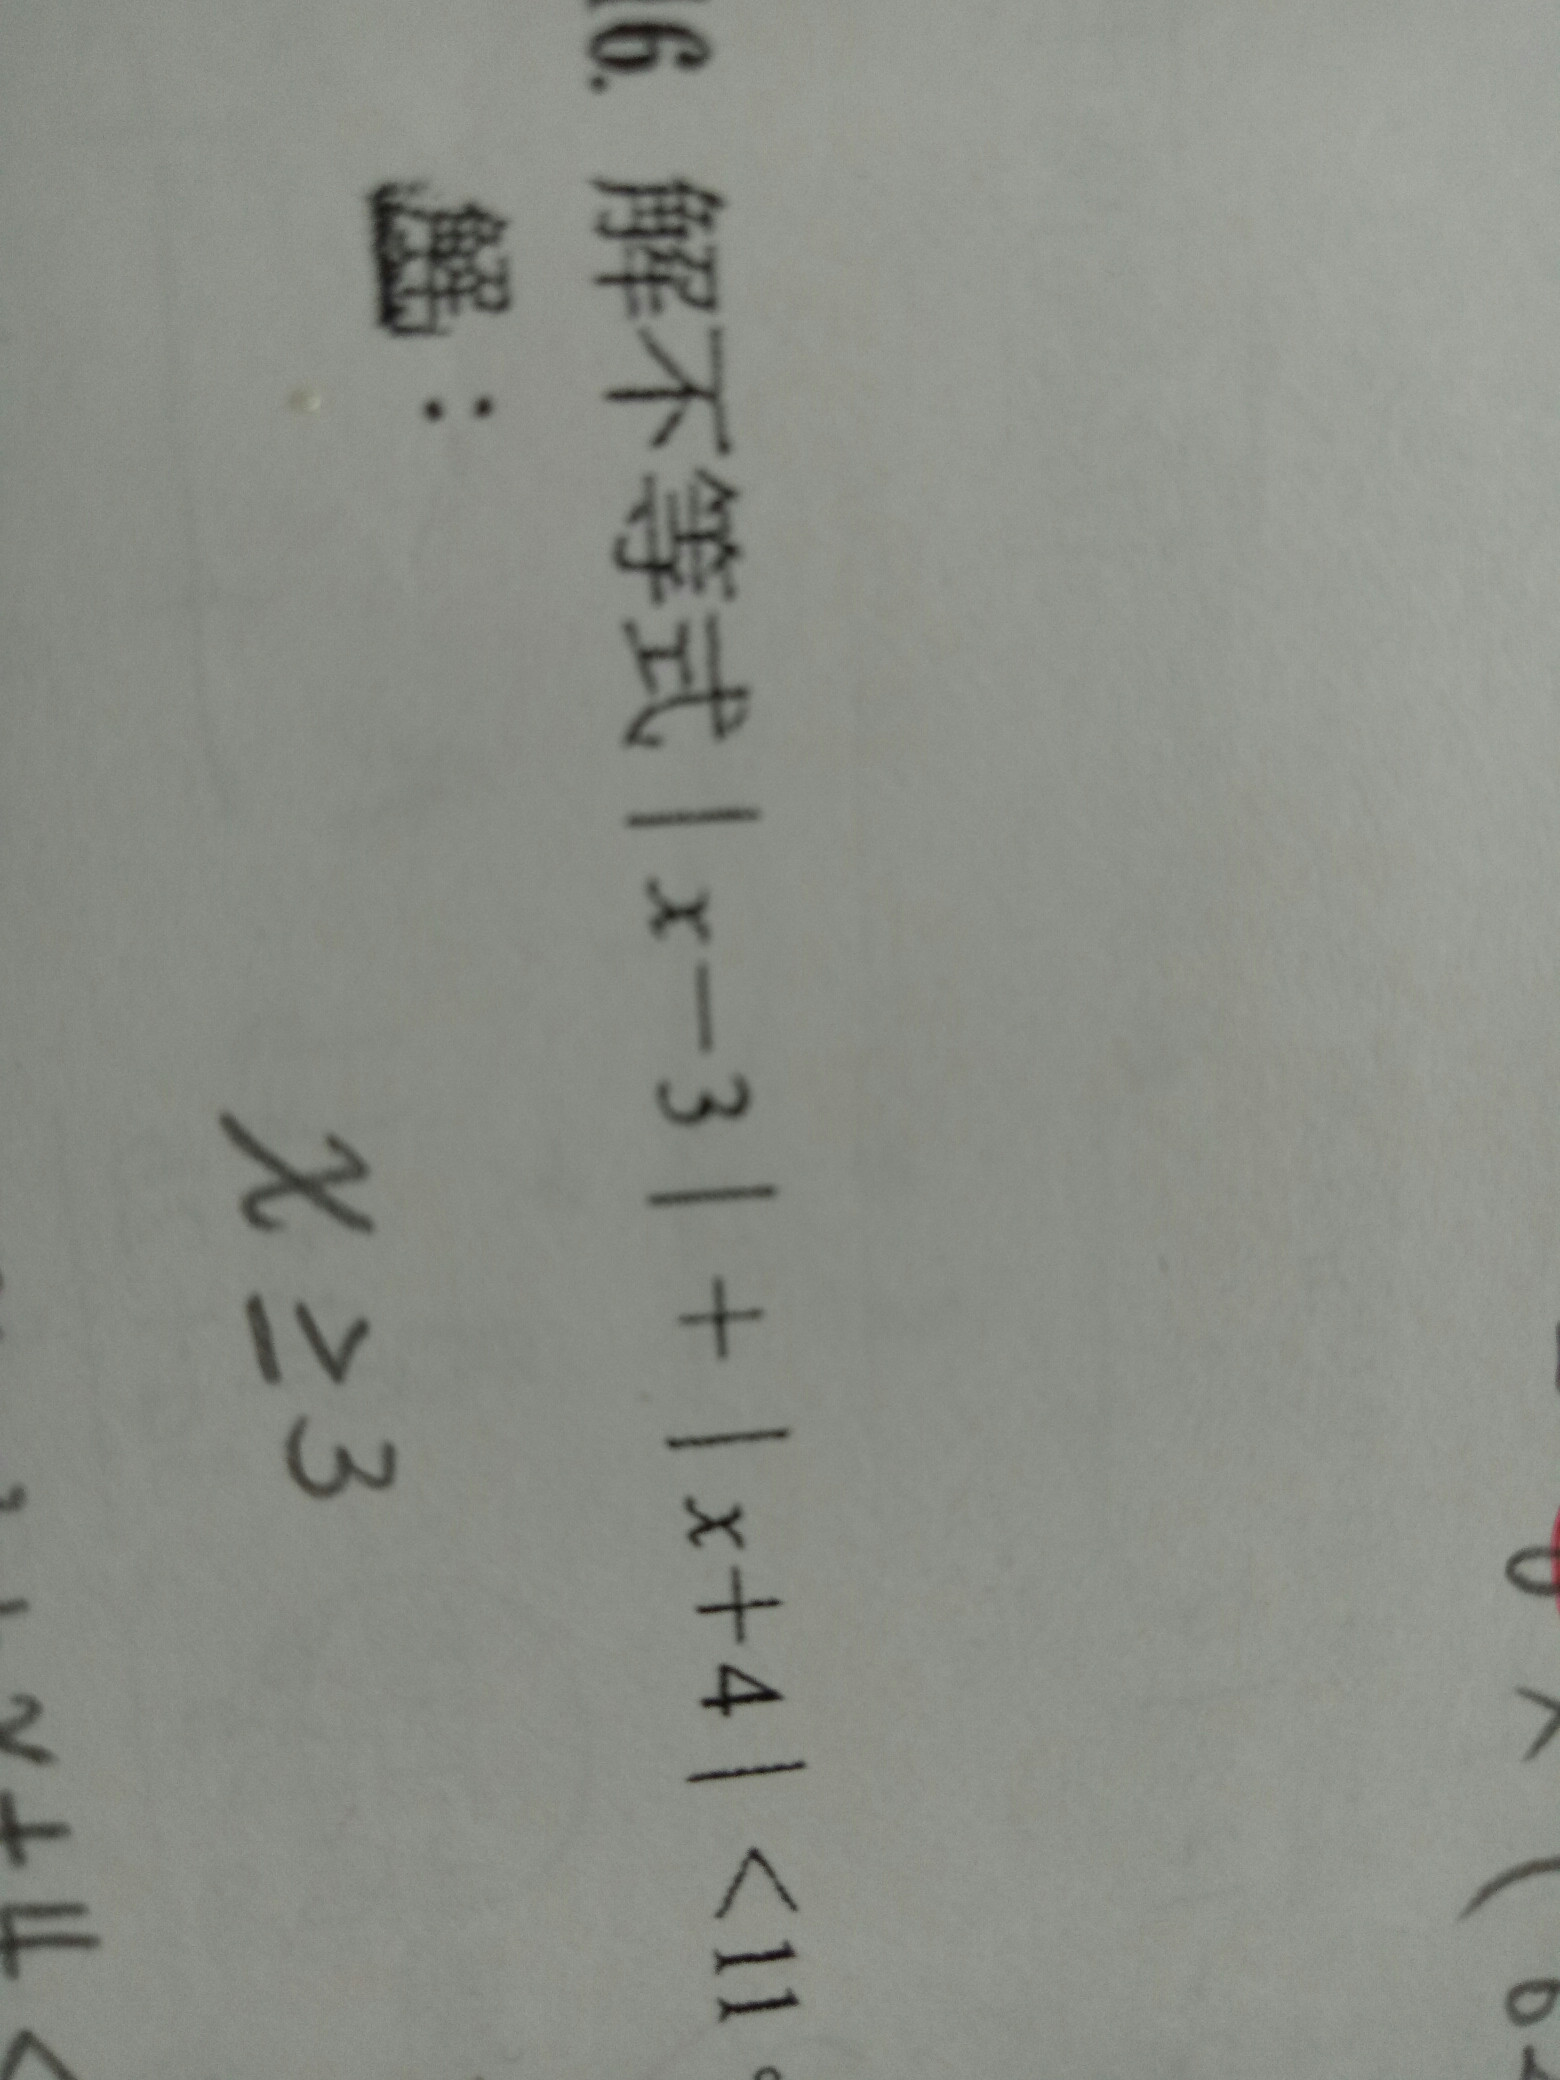 16. 解不等式|x-3|+|x+4|<11。
解:
x≥3
x+4<